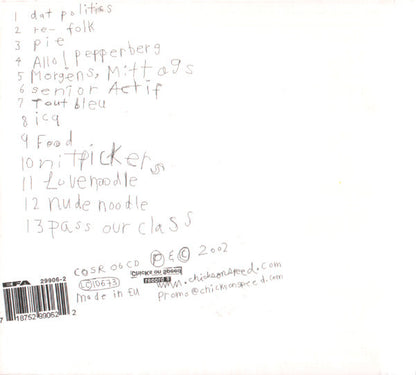 1 dat politics
2 re- folk
3 pie
4 Allo! pepperberg
5 Morgens, Mittags
6 senior Actif
7 Tout bleu
8 icq
9 Food
10 nitpickers
11 Lovenoodle
12 nude noodle
13 pass our class
COSR 06 CD P & © 2002
EFA 29906-2
chicks on speed record s
LC 10673
www.chicksonspeed.com
made in EU
promo@chicksonspeed.com
7 18752 99062 2